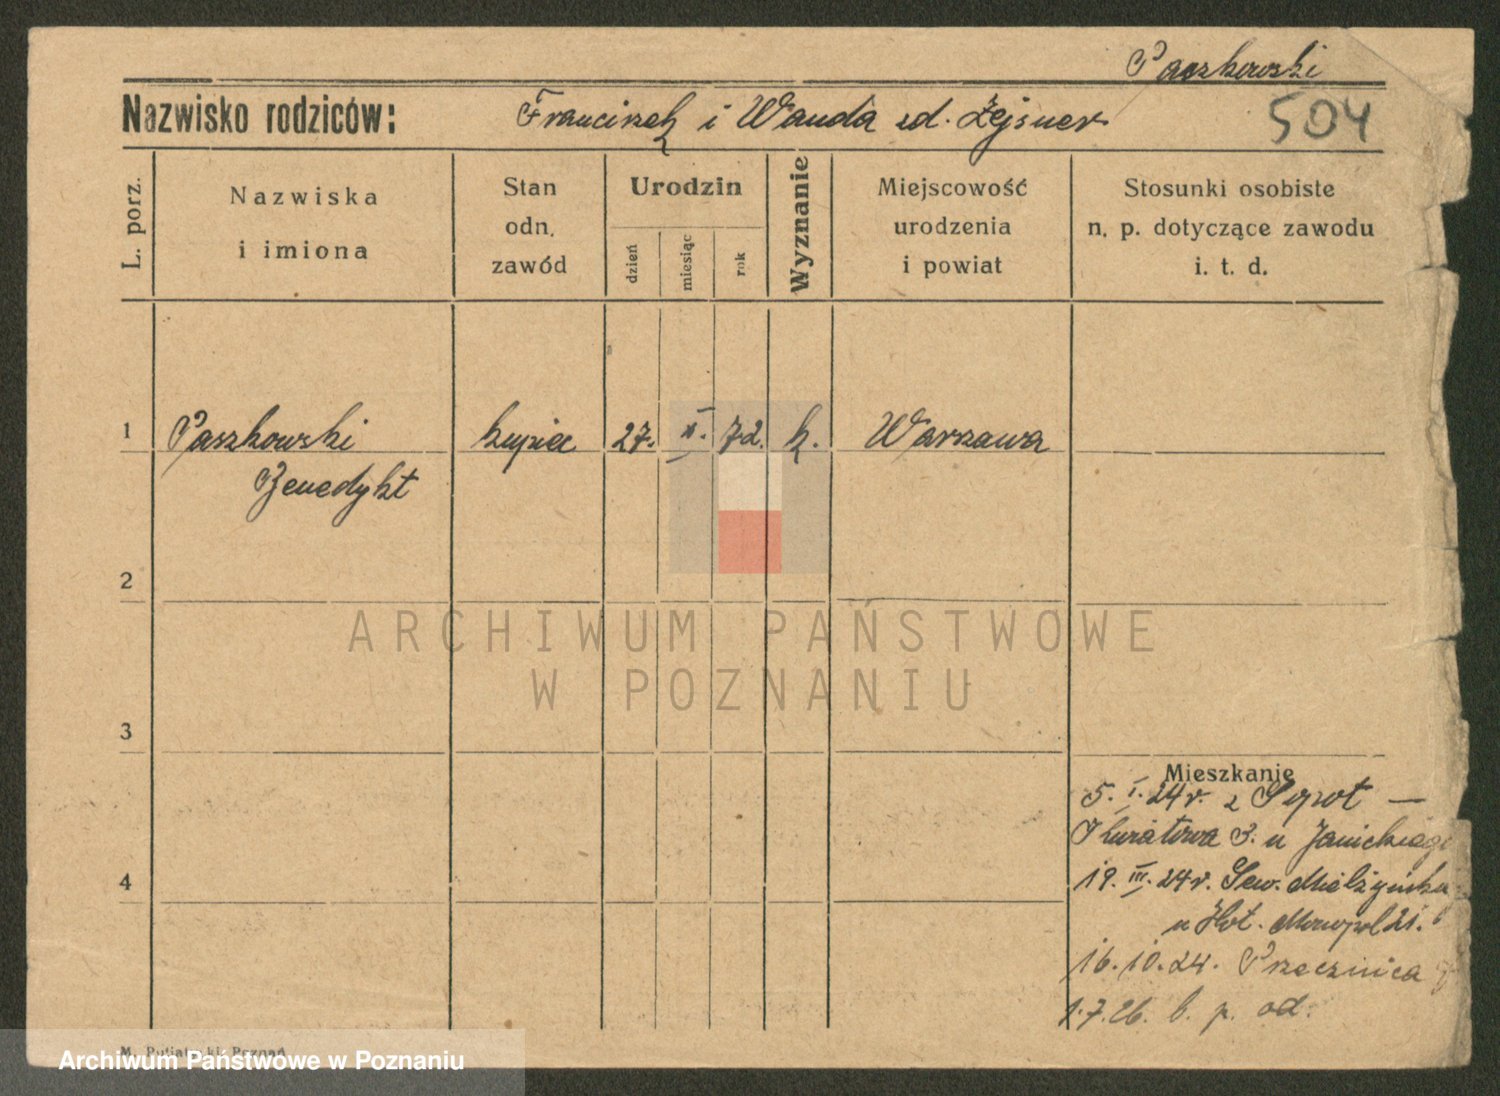 Paszkowski
Nazwisko rodziców: Franciszek i Wanda zd. Zejsner
504
L. porz.
Nazwiska
i imiona
Stan
odn.
zawód
Urodzin
dzień
miesiąc
rok
Wyznanie
Miejscowość
urodzenia
i powiat
Stosunki osobiste
n. p. dotyczące zawodu
i. t. d.
1 Paszkowski kupiec 27. II. 72. k. Warszawa
Benedykt
2
ARCHIWUM PAŃSTWOWE
W POZNANIU
3
Mieszkanie
5. I. 24 r. z Sopot —
3. u Janickiego
4
19. III. 24 r. Sew. Mielżyńska
u Hot. Monopol 21.
16. 10. 24. Przecznica
1.7.26. b. p. od.
M. Putiatycki, Poznań
Archiwum Państwowe w Poznaniu